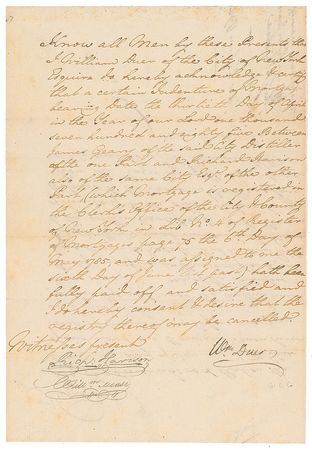 Know all Men by these Presents that
I William Duer of the City of New York
Esquire do hereby acknowledge & certify
that a certain Indenture of Mortgage
bearing Date the thirtieth Day of April
in the Year of our Lord one thousand
seven hundred and eighty five Between
James Geary of the said City Distiller
of the one Part and Richard Harison
also of the same City Esqr. of the other
Part, (which Mortgage is registered in
the Clerk's Office of the City & County
of New York in Lib. No. 4 of Register
of Mortgages page 75 the 6th Day of
May 1785, and was assigned to me the
sixth Day of June last past) hath been
fully paid off and satisfied and
I do hereby consent & desire that the
registry thereof may be cancelled.
Witnesses present
Rich. Harison Wm. Duer